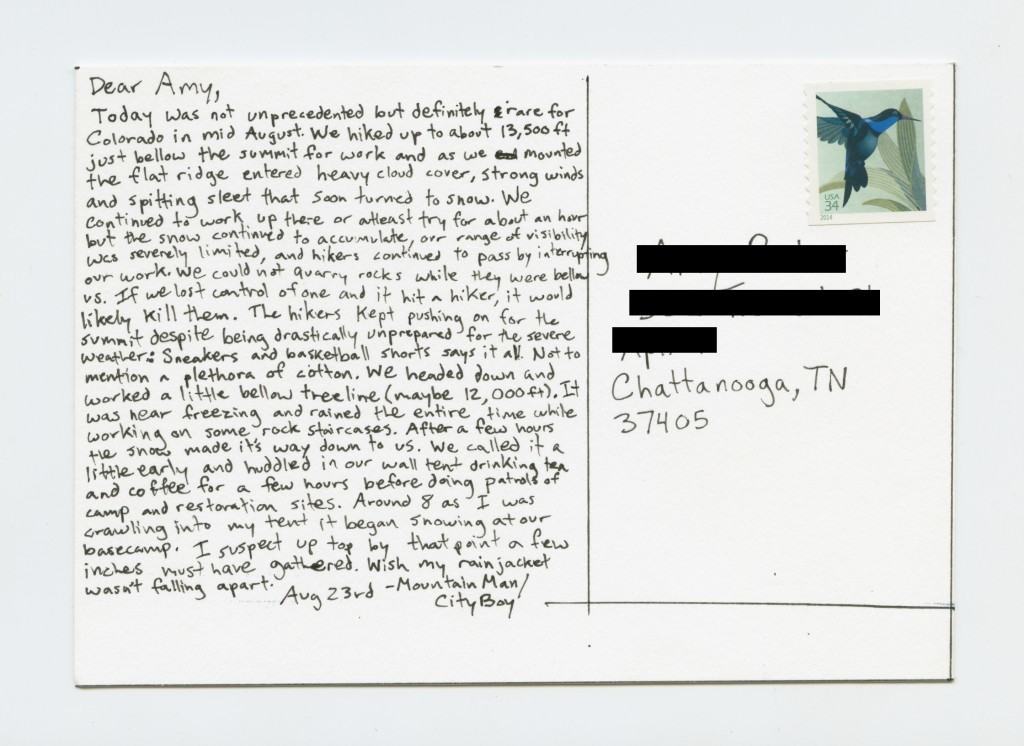 Dear Amy,
Today was not unprecedented but definitely rare for
Colorado in mid August. We hiked up to about 13,500ft
just bellow the summit for work and as we mounted
the flat ridge entered heavy cloud cover, strong winds
and spitting sleet that soon turned to snow. We
continued to work up there or atleast try for about an hour
but the snow continued to accumulate, our range of visibility
was severely limited, and hikers continued to pass by interrupting
our work. We could not quarry rocks while they were bellow
us. If we lost control of one and it hit a hiker, it would
likely kill them. The hikers kept pushing on for the
summit despite being drastically unprepared for the severe
weather. Sneakers and basketball shorts says it all. Not to
mention a plethora of cotton. We headed down and
worked a little bellow treeline (maybe 12,000ft). It
was near freezing and rained the entire time while
working on some rock staircases. After a few hours
the snow made it's way down to us. We called it a
little early and huddled in our wall tent drinking tea
and coffee for a few hours before doing patrols of
camp and restoration sites. Around 8 as I was
crawling into my tent it began snowing at our
basecamp. I suspect up top by that point a few
inches must have gathered. Wish my rainjacket
wasn't falling apart.
Aug 23rd -Mountain Man/
City Boy
USA
34
2014
Chattanooga, TN
37405